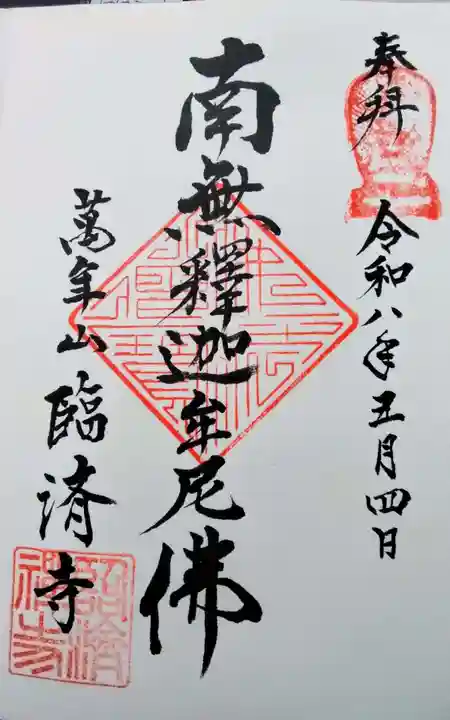 奉拜
令和八年五月四日
南無釋迦牟尼佛
萬年山 臨濟寺